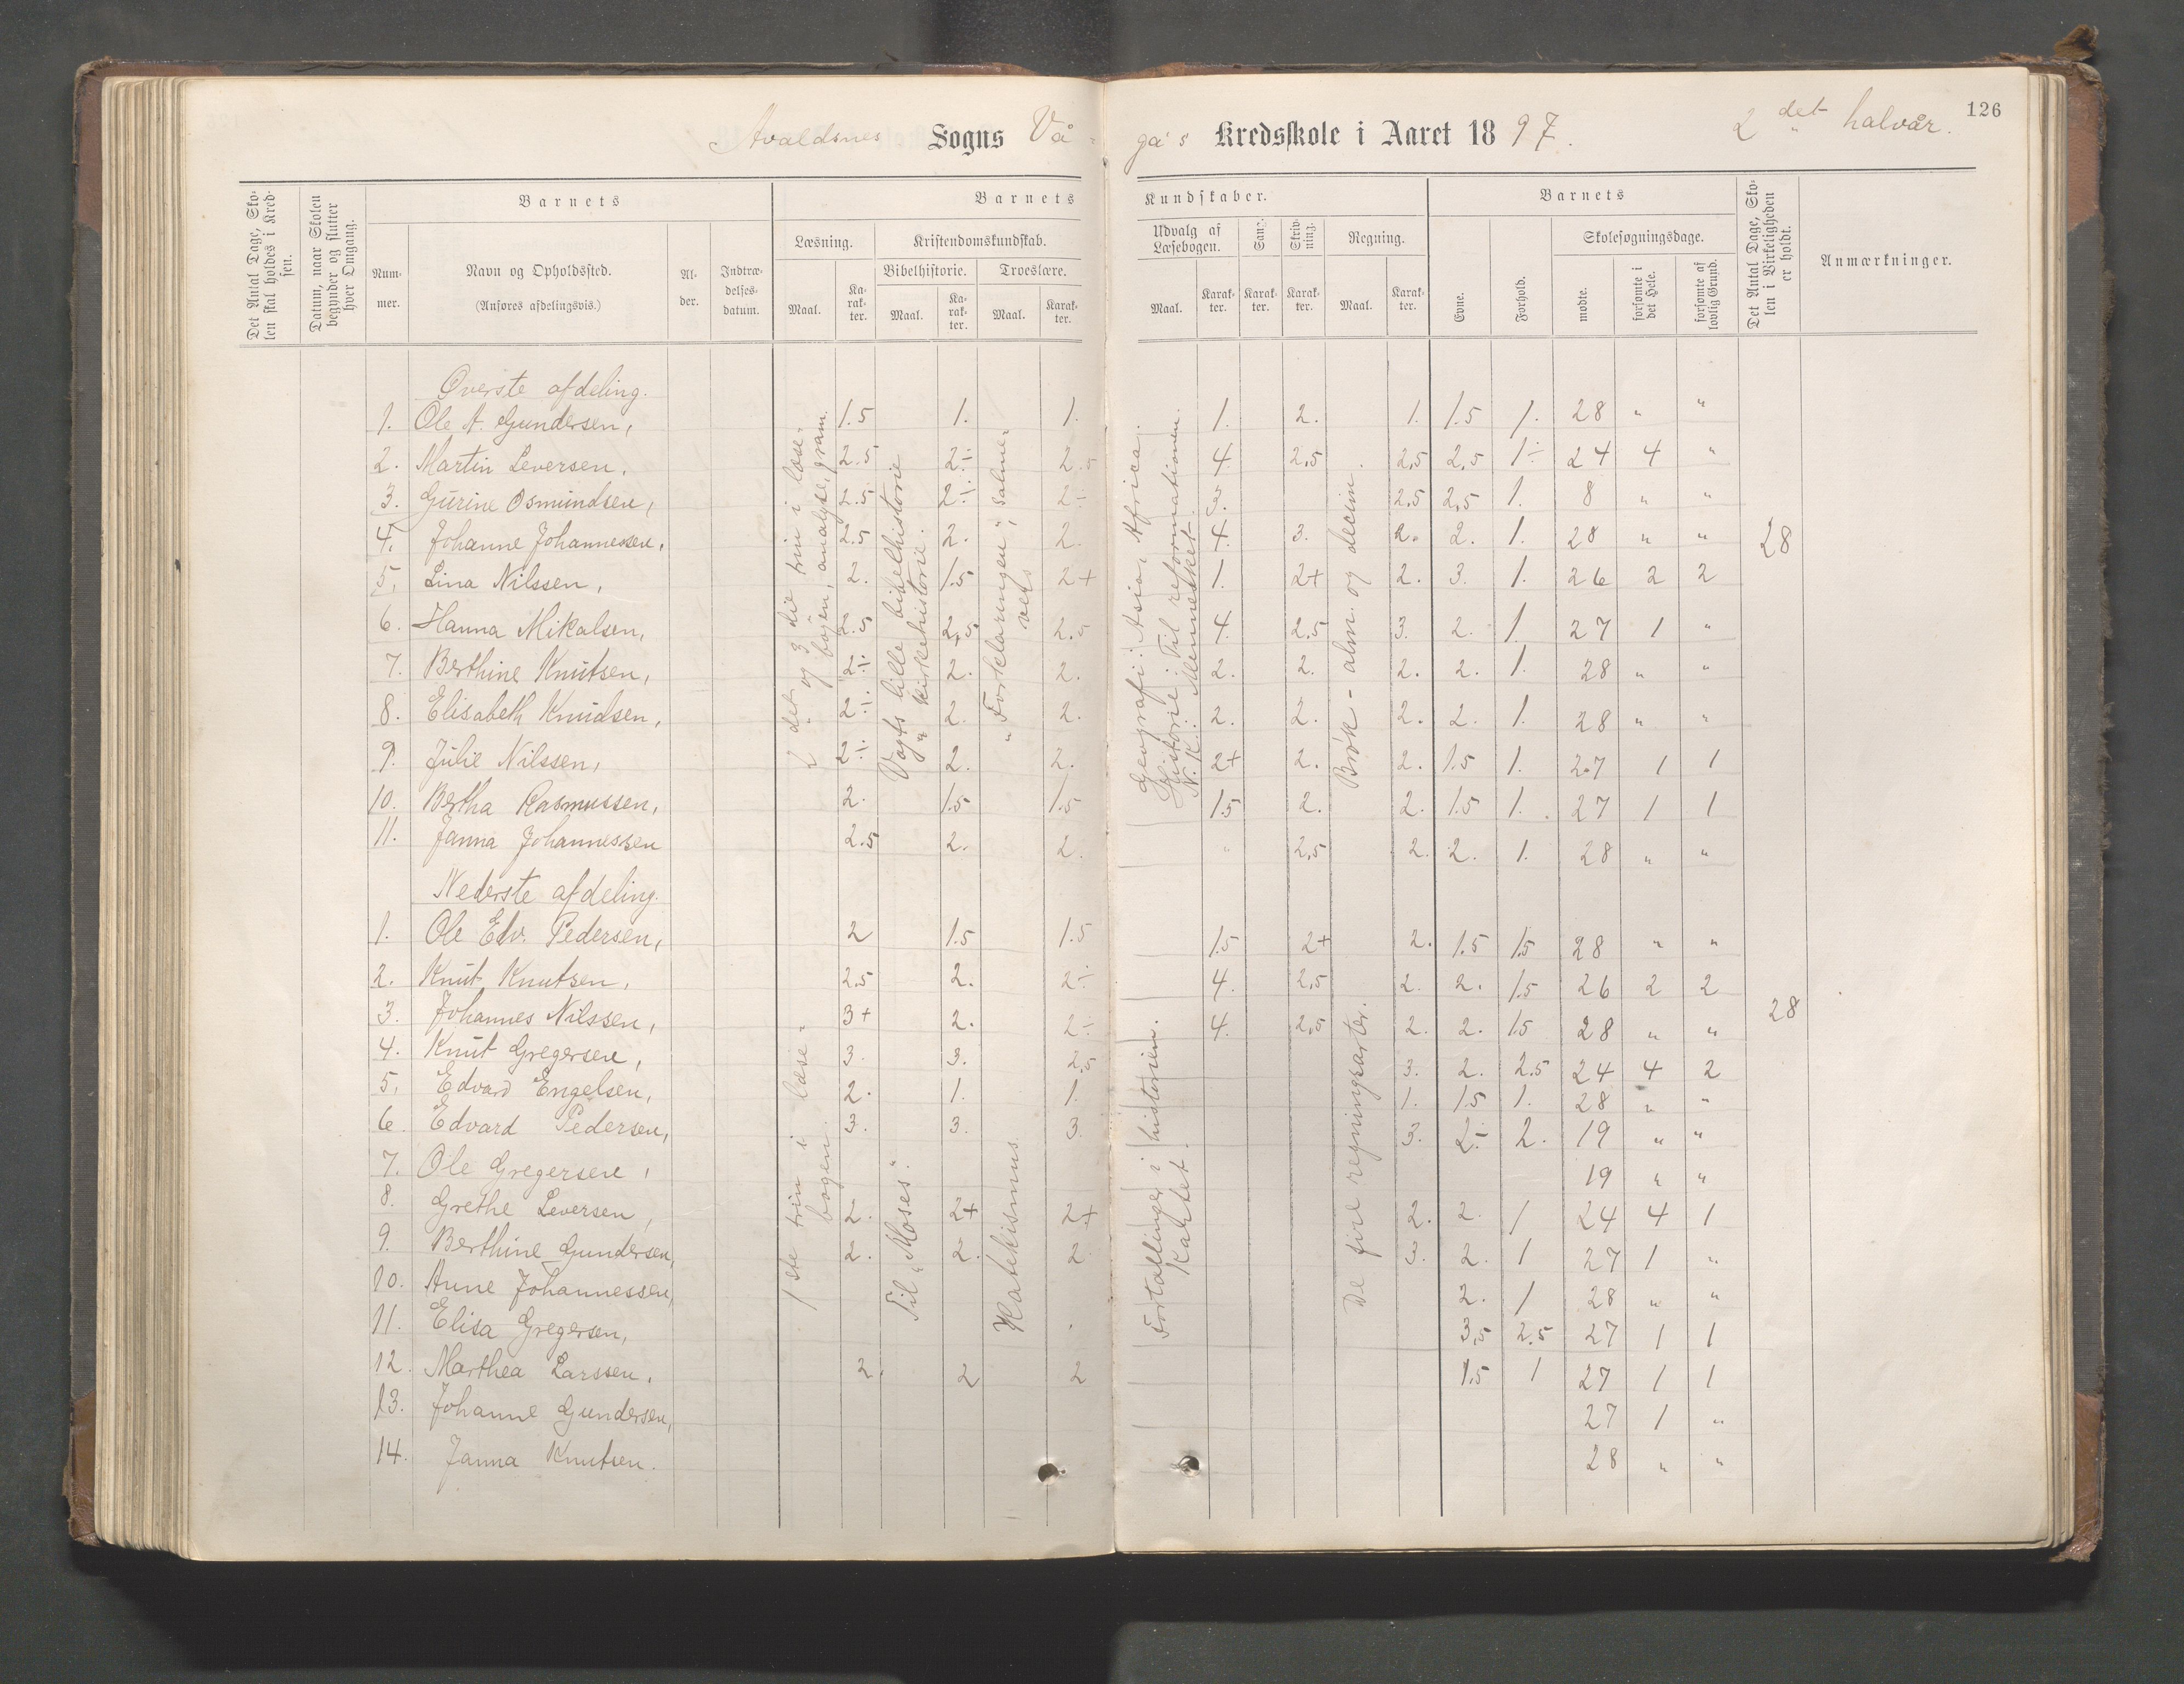 126
Avaldsnes Sogns Vå-
gå's Kredsskole i Aaret 1897. 2det halvår.
Det Antal Dage, Sko-
len skal holdes i Kred-
sen.
Datum, naar Skolen
begynder og slutter
hver Omgang.
Barnets
Num-
mer.
Navn og Opholdssted.
(Anføres afdelingsvis.)
Al-
der.
Indtræ-
delses-
datum.
Barnets
Læsning.
Maal.
Ka-
rak-
ter.
Kristendomskundskab.
Bibelhistorie.
Maal.
Ka-
rak-
ter.
Troeslære.
Maal.
Karak-
ter.
Kundskaber.
Udvalg af
Læsebogen.
Maal.
Karak-
ter.
Sang.
Karak-
ter.
Skriv-
ning.
Karak-
ter.
Regning.
Maal.
Karak-
ter.
Barnets
Evne.
Forhold.
Skolesøgningsdage.
mødte.
forsømte i
det Hele.
forsømte af
lovlig Grund.
Det Antal Dage, Sko-
len i Virkeligheden
er holdt.
Anmærkninger.
Øverste afdeling.
1. Ole A. Gundersen, 1.5 1. 1. 1. 2. 1. 1.5 1. 28 " "
2. Martin Leversen. 2.5 2÷ 2.5 4. 2,5 2,5 2,5 1÷ 24 4 "
3. Gurine Osmundsen, 2.5 2÷ 2÷ 3. 2,5 2,5 1. 8 " "
4. Johanne Johannessen, 2.5 2. 2. 4. 3. 2. 2. 1. 28 " "
28
5. Lina Nilssen, 2. 1.5 2+ 1. 2+ 2. 3. 1. 26 2 2
6. Hanna Mikalsen, 2.5 2,5 2.5 4. 2.5 3. 2. 1. 27 1 "
7. Berthine Knutsen, 2÷ 2. 2. 2. 2. 2. 2. 1. 28 " "
8. Elisabeth Knudsen, 2÷ 2. 2. 2. 2. 2. 2. 1. 28 " "
9. Julie Nilssen, 2÷ 2. 2. 2+ 2. 2. 1.5 1. 27 1 1
10. Bertha Rasmussen, 2. 1.5 1.5 1.5 2. 2. 1.5 1. 27 1 1
11. Janna Johannessen 2.5 2. 2. " 2,5 2. 2. 1. 28 " "
2det og 3die trin i læse-
bogen, analyse, gram.
Vogts lille bibelhistorie
" kirkehistorie.
"Forklaringen", salme-
vers
Geografi: Asia, Africa.
Historie: Til reformationen.
N. K.: Mennesket.
Brøk - alm. og decim.
Nederste afdeling.
1. Ole Edv. Pedersen, 2 1.5 1.5 1.5 2+ 2. 1.5 1.5 28 " "
2. Knut Knutsen, 2.5 2. 2÷ 4. 2,5 2. 2. 1.5 26 2 2
3. Johannes Nilssen, 3+ 2. 2÷ 4. 2,5 2. 2. 1.5 28 " "
28
4. Knut Gregersen, 3. 3. 2,5 3. 2. 2.5 24 4 2
5. Edvard Engelsen, 2. 1. 1. 1. 1.5 1. 28 " "
6. Edvard Pedersen, 3. 3. 3. 3. 2÷ 2. 19 " "
7. Ole Gregersen, 19 " "
8. Grethe Leversen, 2. 2+ 2+ 2. 2. 1 24 4 1
9. Berthine Gundersen, 2. 2. 2. 3. 2. 1 27 1 "
10. Anne Johannessen, 2. 1 28 " "
11. Elisa Gregersen, 3,5 2.5 27 1 1
12. Marthea Larssen, 2. 2 2 1.5 1 27 1 1
13. Johanne Gundersen, 27 1 "
14. Janna Knutsen. 28 " "
1ste trin i læse-
bogen.
Til "Moses".
Katekismus.
Fortællinger i historien.
Kartet.
De fire regningsarter.